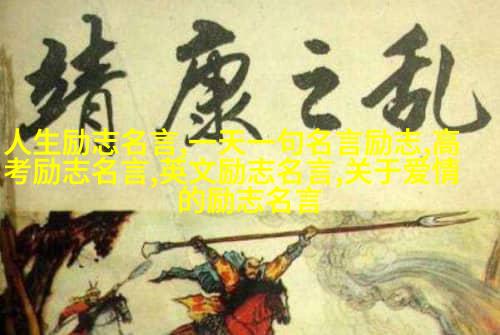 靖康之乱
人生励志名言,一天一句名言励志,高
考励志名言,英文励志名言,关于爱情
的励志名言